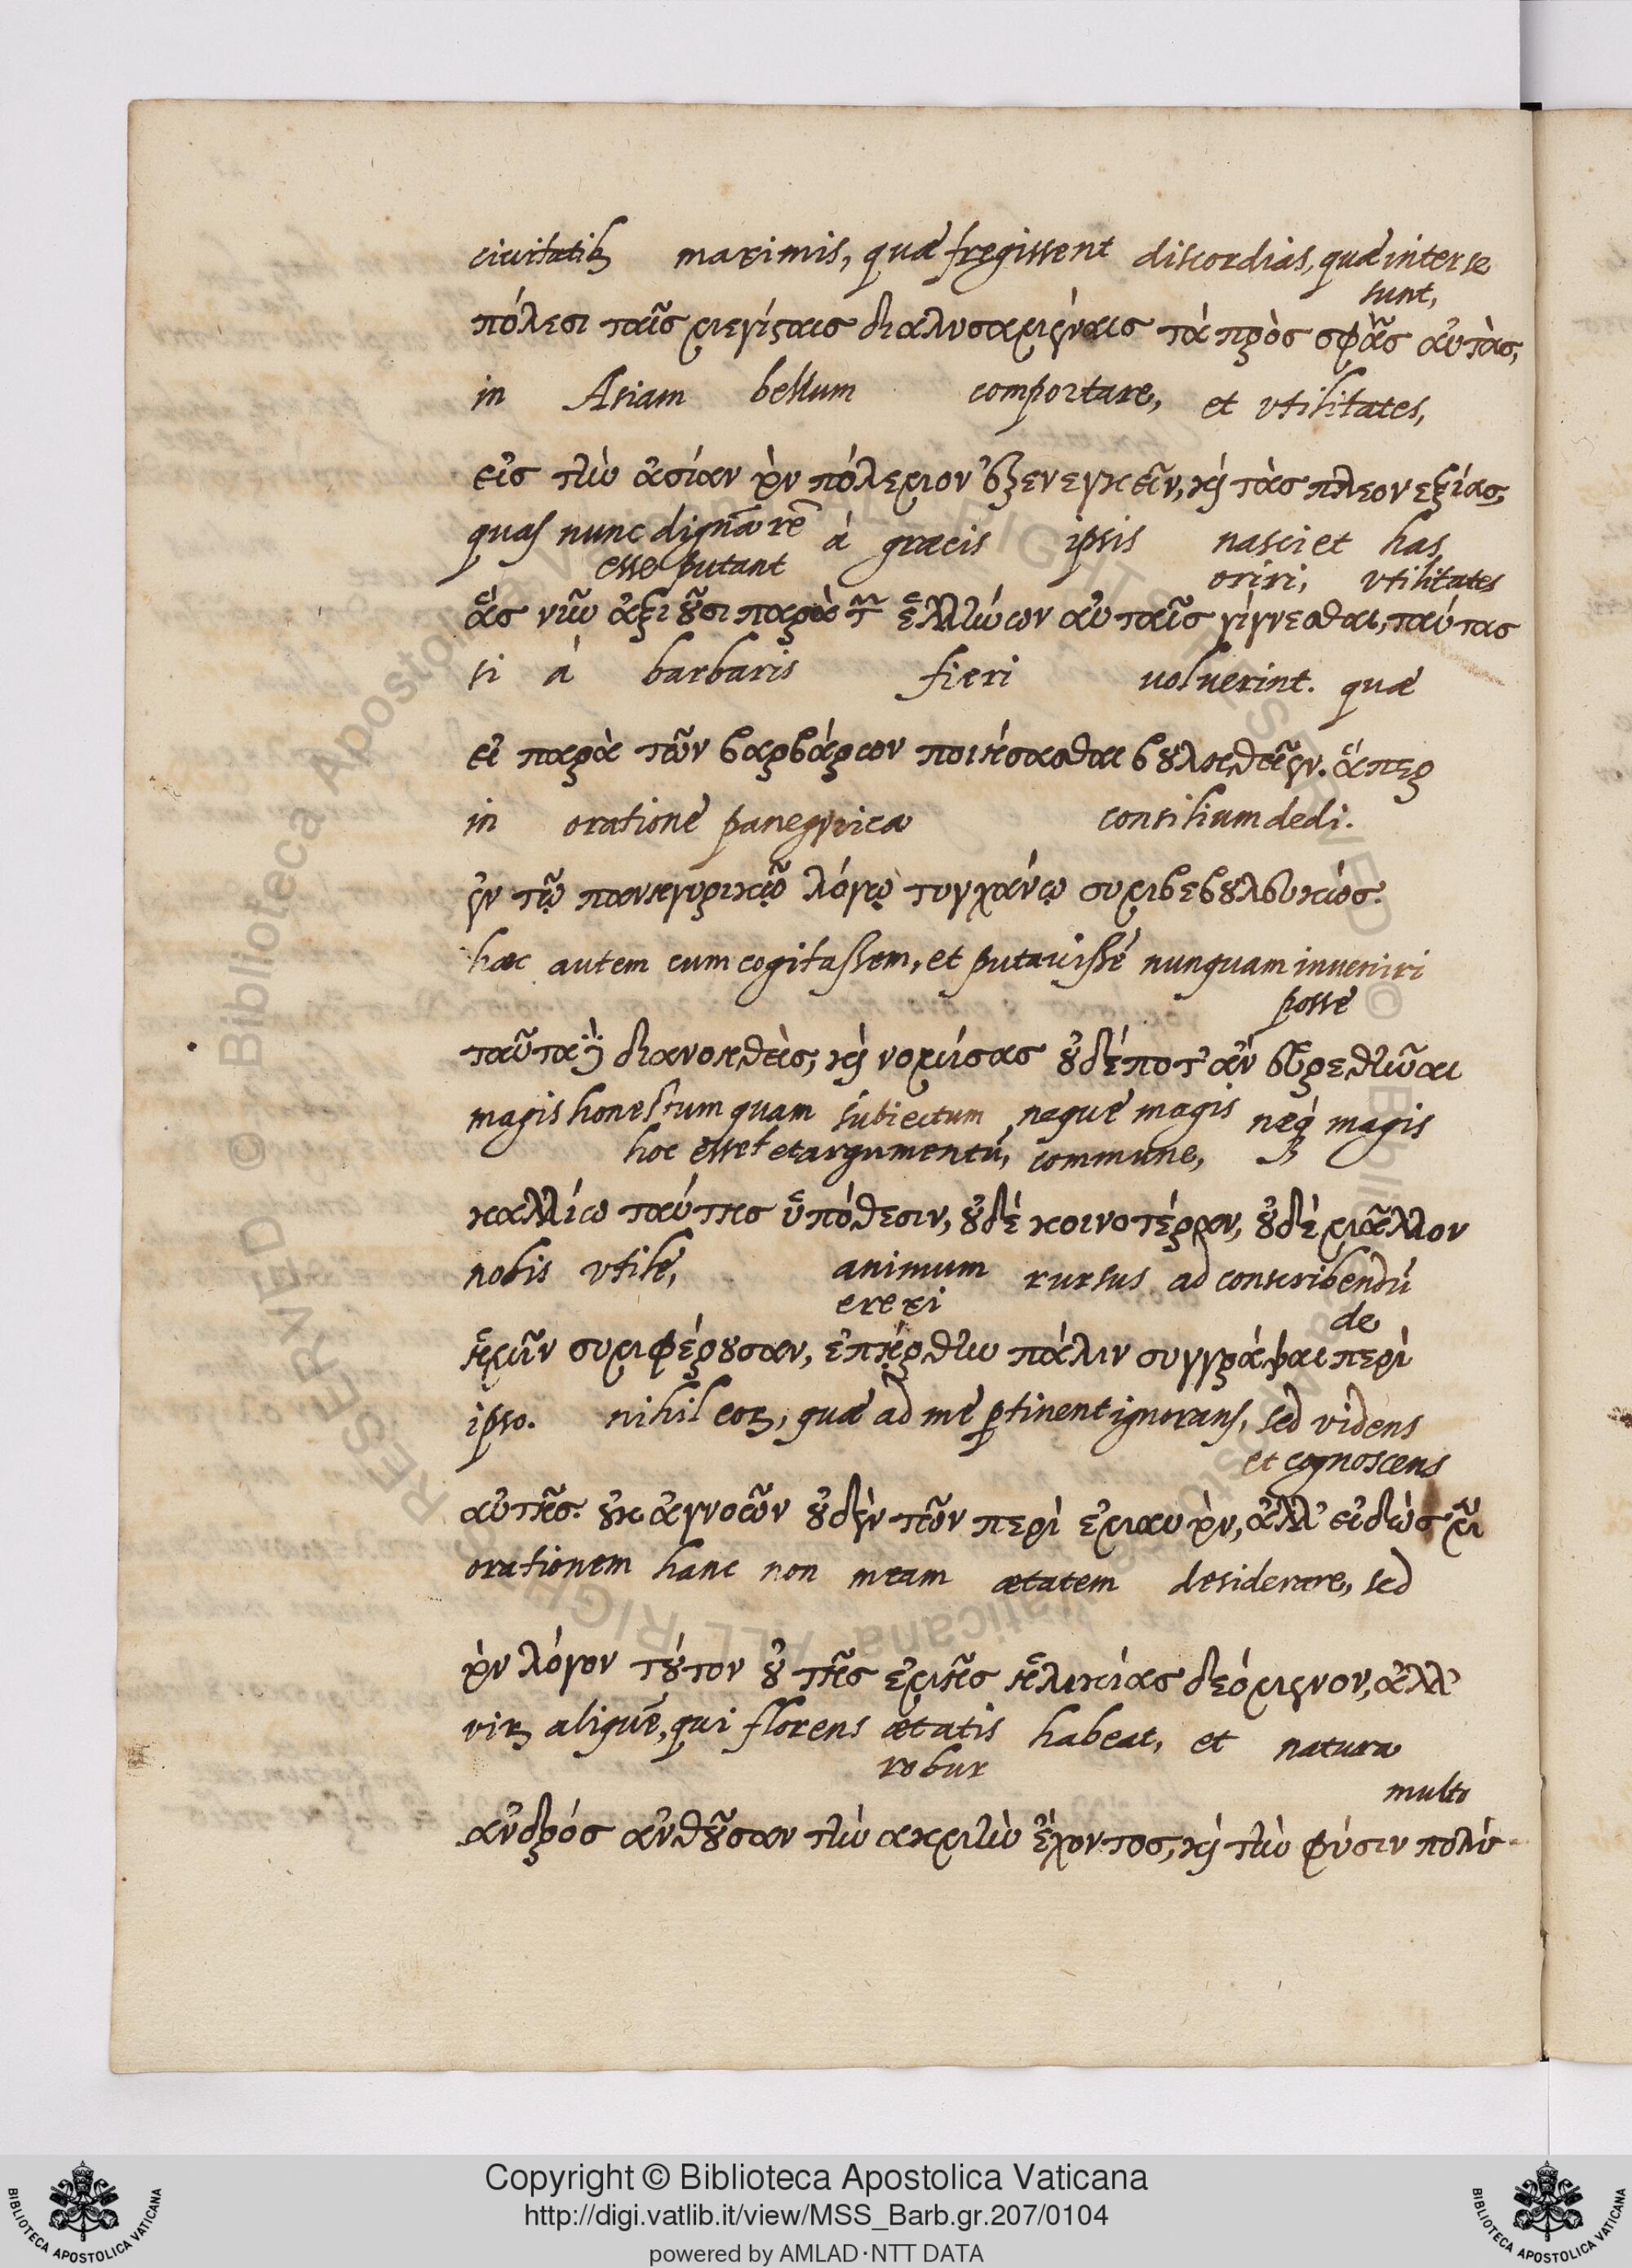 civitatib₃ maximis, quæ fregissent discordias, quæ inter se
sunt,
πόλεσι ταῖς μεγίσαις διαλυσαμέναις τὰ πρὸς σφᾶς αὐτὰς,
in Asiam bellum comportare, et vtilitates,
εἰς τὴν ἀσίαν τὸν πόλεμον ἐξενεγκεῖν, καὶ τὰς πλεονεξίας,
quas nunc dignā rē à græcis ipsis nasci et has
esse putant oriri, vtilitates
ἃς νῦν ἀξιοῦσι παρὰ τῶν ἑλλήνων αὐταῖς γίγνεσθαι, ταύτας
si à barbaris fieri voluerint. quæ
εἰ παρὰ τῶν βαρβάρων ποιήσασθαι βουληθεῖεν. ἅπερ
in oratione panegyrica consilium dedi.
ἐν τῷ πανηγυρικῷ λόγῳ τυγχάνω συμβεβουλευκώς.
hæc autem cum cogitassem, et putavissē nunquam inveniri
posse
ταῦτα δὲ διανοηθεὶς, καὶ νομίσας οὐδέποτ' ἂν εὑρεθῆναι
magis honestum quam subiectum neque magis neq́₃ magis
hoc esset et argumentū, commune,
καλλίω ταύτης ὑπόθεσιν, οὐδὲ κοινοτέραν, οὐδὲ μᾶλλον
nobis vtile, animum rursus ad conscribendū
erexi de
ἡμῖν συμφέρουσαν, ἐπήρθην πάλιν συγγράψαι περὶ
ipso. nihil eoꝝ, quæ ad me ꝑtinent ignorans, sed videns
et cognoscens
αὐτῆς. οὐκ ἀγνοῶν οὐδὲν τῶν περὶ ἐμαυτὸν, ἀλλ' εἰδὼς μὲν
orationem hanc non meam ætatem desiderare, sed
τὸν λόγον τοῦτον οὐ τῆς ἐμῆς ἡλικίας δεόμενον, ἀλλ'
viꝝ aliquē, qui florens ætatis habeat, et natura
robur multo
ἀνδρός ἀνθοῦσαν τὴν ακμὴν ἔχοντος, καὶ τὴν φύσιν πολύ
Copyright © Biblioteca Apostolica Vaticana
http://digi.vatlib.it/view/MSS_Barb.gr.207/0104
powered by AMLAD·NTT DATA
BIBLIOTECA APOSTOLICA VATICANA
BIBLIOTECA APOSTOLICA VATICANA